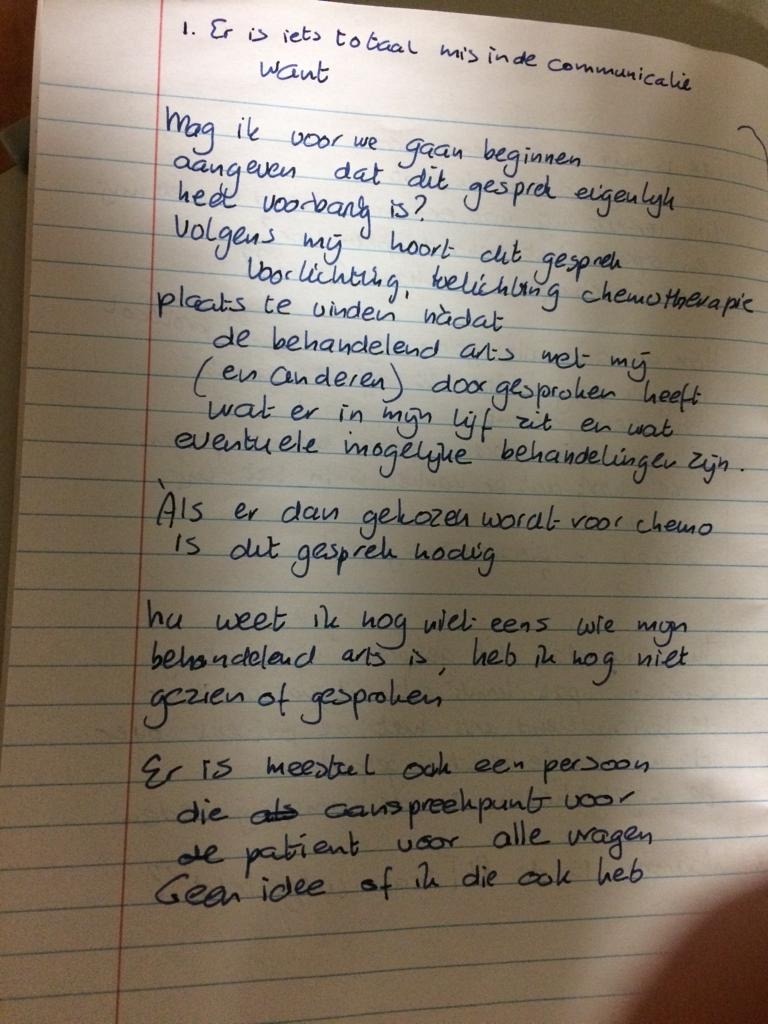 1. Er is iets totaal mis in de communicatie
want
Mag ik voor we gaan beginnen
aangeven dat dit gesprek eigenlijk
heel voorbarig is?
Volgens mij hoort dit gesprek
Voorlichting, toelichting chemotherapie
plaats te vinden nàdat
de behandelend arts met mij
(en anderen) doorgesproken heeft
wat er in mijn lijf zit en wat
eventuele mogelijke behandelingen zijn.
Àls er dan gekozen wordt voor chemo
is dit gesprek nodig
nu weet ik nog niet eens wie mijn
behandelend arts is, heb ik nog niet
gezien of gesproken
Er is meestal ook een persoon
die als aanspreekpunt voor
de patient voor alle vragen
Geen idee of ik die ook heb